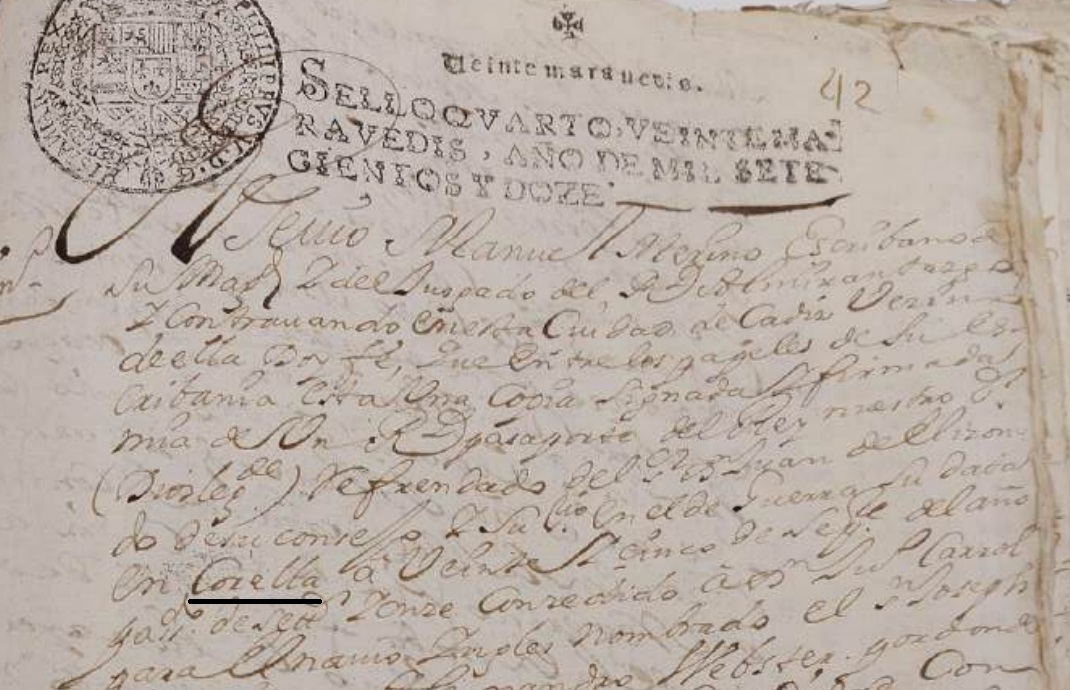 42
Veinte maravedis.
SELLO QVARTO, VEINTE MA-
RAVEDIS, AÑO DE MIL SETE-
CIENTOS Y DOZE
Manuel Merino Escribano de
Su Mag.d Y del Juzgado del Rl Almirantazgo
Y Contravando en esta Ciudad de Cadiz Vezino
de ella Doy fé, que entre los papeles de su es-
cribania esta Una Copia signada Y firmada
mia de Un Rl pasaporte del Rey nuestro Sr
(Dios le gde) Refrendado del Sr Dn Juan de Elizon-
do de su consejo Y Su Srio en el de Guerra su data
en Corella à Veinte Y cinco de Sepre del año
pass.do de sett.s Y onze Concedido à
para el navio Ingles nombrado el Sn Joseph
Webster. por donde
Con